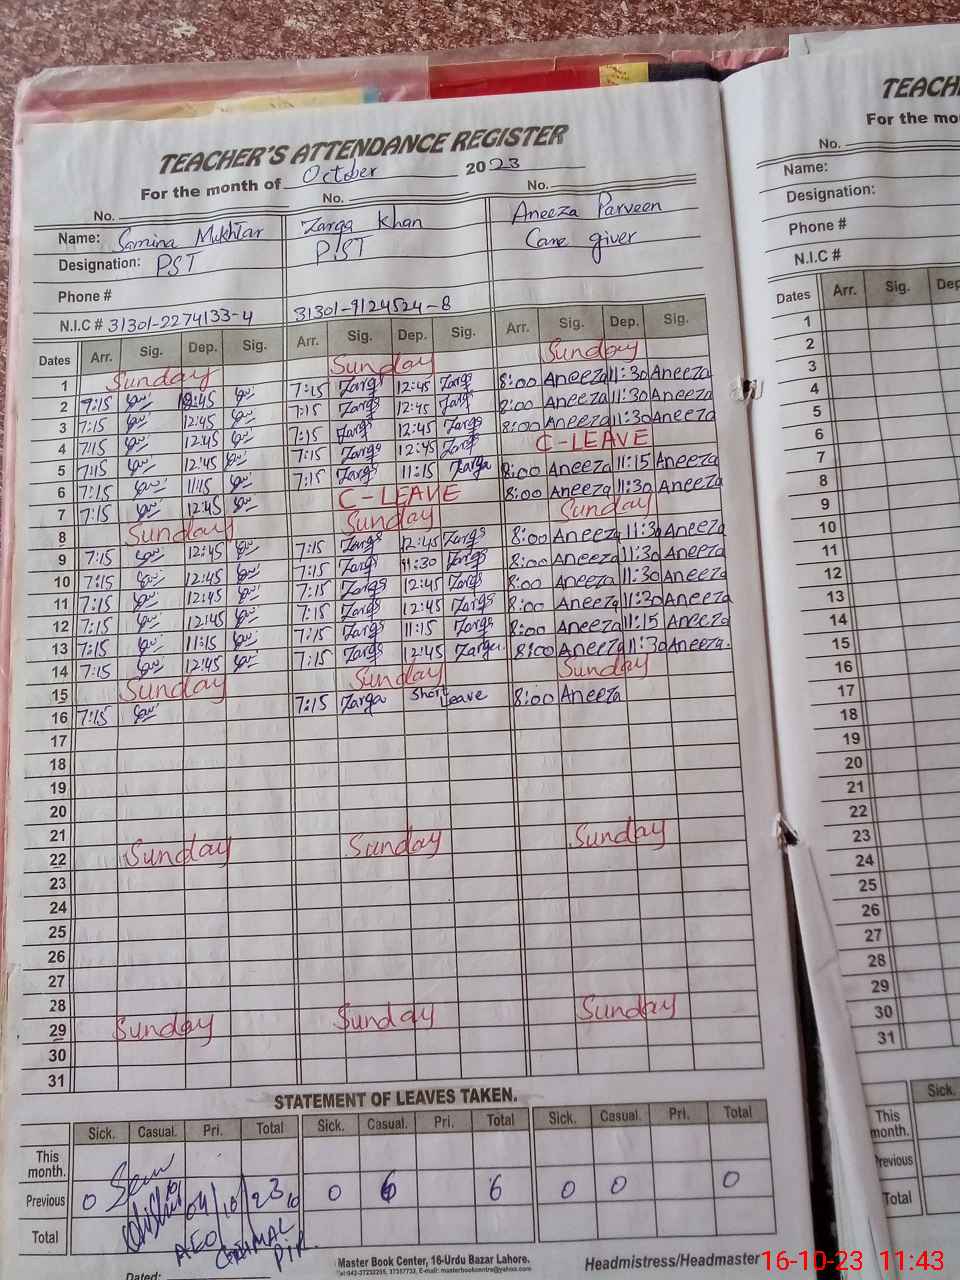 TEACHER'S ATTENDANCE REGISTER
For the month of October 2023
No. No. No.
Name: Samina Mukhtar Zarga Khan Aneeza Parveen
Designation: PST PST Care giver
Phone #
N.I.C # 31301-2274133-4 31301-9124524-8
Dates Arr. Sig. Dep. Sig. Arr. Sig. Dep. Sig. Arr. Sig. Dep. Sig.
1 Sunday Sunday Sunday
2 7:15 12:45 7:15 Zarga 12:45 Zarga 8:00 Aneeza 11:30 Aneeza
3 7:15 12:45 7:15 Zarga 12:45 Zarga 8:00 Aneeza 11:30 Aneeza
4 7:15 12:45 7:15 Zarga 12:45 Zarga 8:00 Aneeza 11:30 Aneeza
5 7:15 12:45 7:15 Zarga 12:45 Zarga C-LEAVE
6 7:15 11:15 7:15 Zarga 11:15 Zarga 8:00 Aneeza 11:15 Aneeza
7 7:15 12:45 C-LEAVE 8:00 Aneeza 11:30 Aneeza
8 Sunday Sunday Sunday
9 7:15 12:45 7:15 Zarga 12:45 Zarga 8:00 Aneeza 11:30 Aneeza
10 7:15 12:45 7:15 Zarga 11:30 Zarga 8:00 Aneeza 11:30 Aneeza
11 7:15 12:45 7:15 Zarga 12:45 Zarga 8:00 Aneeza 11:30 Aneeza
12 7:15 12:45 7:15 Zarga 12:45 Zarga 8:00 Aneeza 11:30 Aneeza
13 7:15 11:15 7:15 Zarga 11:15 Zarga 8:00 Aneeza 11:15 Aneeza
14 7:15 12:45 7:15 Zarga 12:45 Zarga 8:00 Aneeza 11:30 Aneeza
15 Sunday Sunday Sunday
16 7:15 7:15 Zarga Short Leave 8:00 Aneeza
17
18
19
20
21
22 Sunday Sunday Sunday
23
24
25
26
27
28
29 Sunday Sunday Sunday
30
31
STATEMENT OF LEAVES TAKEN.
Sick. Casual. Pri. Total Sick. Casual. Pri. Total Sick. Casual. Pri. Total
This month.
Previous 0 04/10/23 0 6 6 0 0 0
Total AEO
Dated:
Master Book Center, 16-Urdu Bazar Lahore.
Headmistress/Headmaster
TEACH
For the mo
No.
Name:
Designation:
Phone #
N.I.C #
Dates Arr. Sig. Dep
1
2
3
4
5
6
7
8
9
10
11
12
13
14
15
16
17
18
19
20
21
22
23
24
25
26
27
28
29
30
31
Sick.
This month.
Previous
Total
16-10-23 11:43